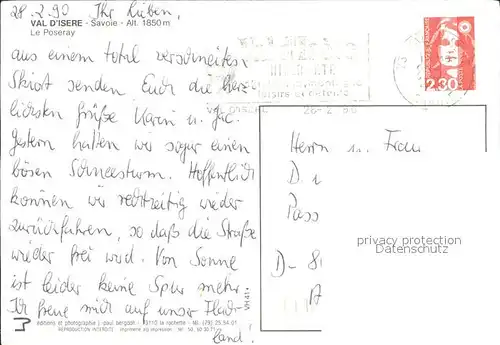 28.2.90 Ihr Lieben,
VAL D'ISERE - Savoie - Alt. 1850 m
Le Poseray
aus einem total verschneiten
Skiort senden Euch die herz
lichsten Grüße Karin u. Jac.
Gestern hatten wir sogar einen
bösen Schneesturm. Hoffentlich
können wir rechtzeitig wieder
zurückfahren, so daß die Straße
wieder frei wird. Von Sonne
ist leider keine Spur mehr.
Ich freue mich auf unser Flach-
land!
VAL D'ISERE 28-2 90
2,30
Herrn u. Frau
D
Pass
D- 8
privacy protection
Datenschutz
VH 41
éditions et photographie j. paul bergost - 73110 la rochette - tél. (79) 25.54.01
REPRODUCTION INTERDITE imprimerie